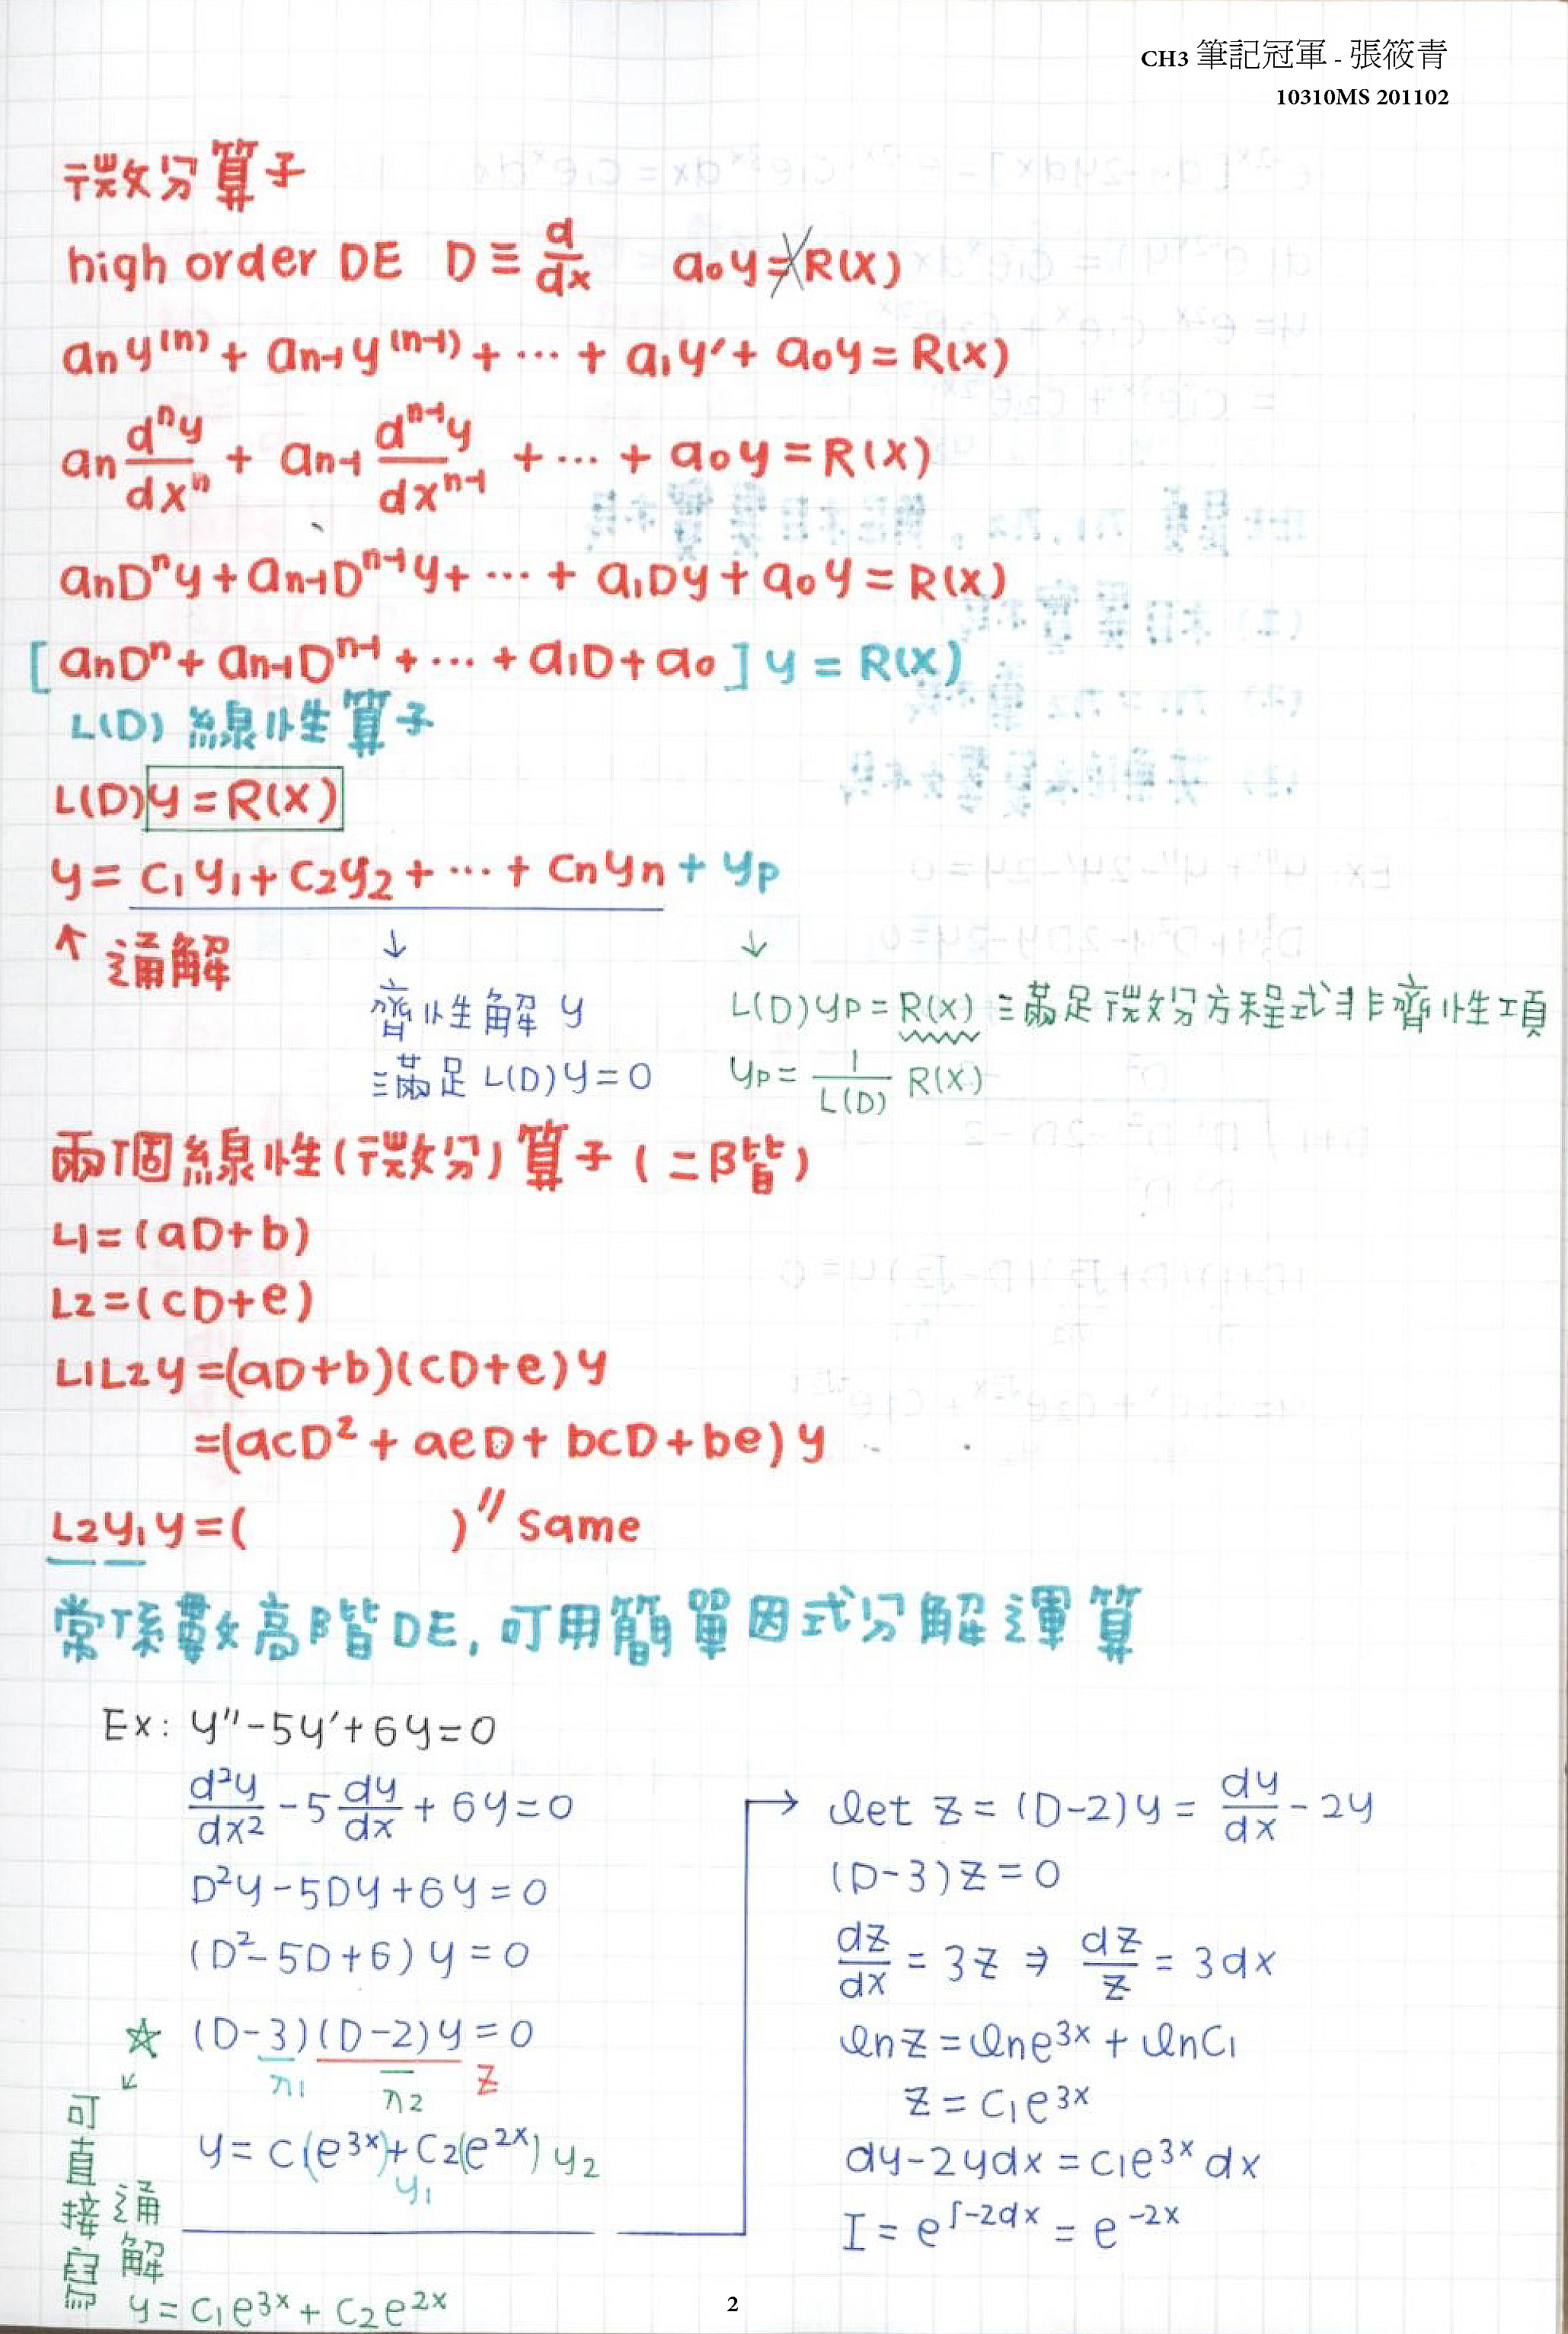 CH3 筆記冠軍 - 張筱青
10310MS 201102
微分算子
high order DE D ≡ d/dx a₀y=R(x)
aₙy⁽ⁿ⁾ + aₙ₋₁y⁽ⁿ⁻¹⁾ + ⋯ + a₁y′ + a₀y = R(x)
aₙ dⁿy/dxⁿ + aₙ₋₁ dⁿ⁻¹y/dxⁿ⁻¹ + ⋯ + a₀y = R(x)
aₙDⁿy + aₙ₋₁Dⁿ⁻¹y + ⋯ + a₁Dy + a₀y = R(x)
[aₙDⁿ + aₙ₋₁Dⁿ⁻¹ + ⋯ + a₁D + a₀] y = R(x)
L(D) 線性算子
L(D) y = R(x)
y = c₁y₁ + c₂y₂ + ⋯ + cₙyₙ + yₚ
↑ 通解 ↓ ↓
齊性解 y
滿足 L(D)y=0
L(D)yₚ = R(x) 滿足微分方程式非齊性項
yₚ = 1/L(D) R(x)
兩個線性(微分)算子(二階)
L1=(aD+b)
L2=(cD+e)
L1L2y=(aD+b)(cD+e)y
=(acD² + aeD + bcD + be) y
L2y₁y=( )〃 same
常係數高階DE, 可用簡單因式分解運算
Ex: y″-5y′+6y=0
d²y/dx² - 5 dy/dx + 6y = 0
D²y-5Dy+6y=0
(D²-5D+6) y = 0
☆ (D-3)(D-2)y=0
λ1 λ2 z
y = c(e³ˣ)+c₂(e²ˣ) y₂
y₁
可直接寫
通解
y = c₁e³ˣ + c₂e²ˣ
→ let z = (D-2)y = dy/dx - 2y
(D-3)z = 0
dz/dx = 3z ⇒ dz/z = 3dx
lnz = lne³ˣ + lnc₁
z = c₁e³ˣ
dy-2ydx = c₁e³ˣ dx
I = e^∫-2dx = e⁻²ˣ
2